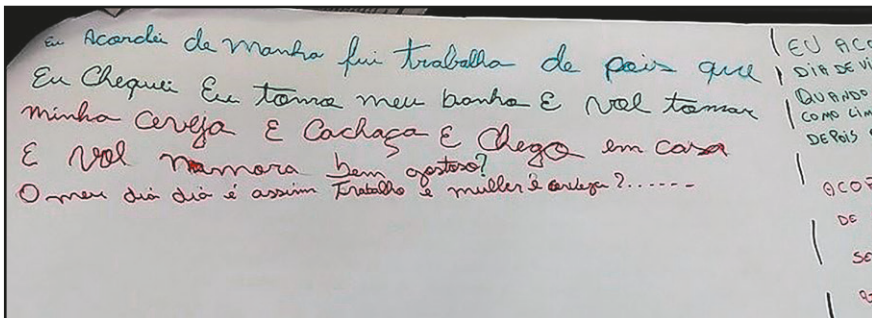 Eu Acordei de manha fui trabalha de pois que
Eu Cheguei Eu toma meu banho E vol tomar
minha cerveja E Cachaça E Chego em casa
E vol namora bem gostoso?
O meu dia dia é assim Trabalho é muller é cerveja?......
EU ACO
DIA DE VI
QUANDO
COMO LIM
DEPOIS
ACOR
DE
SE